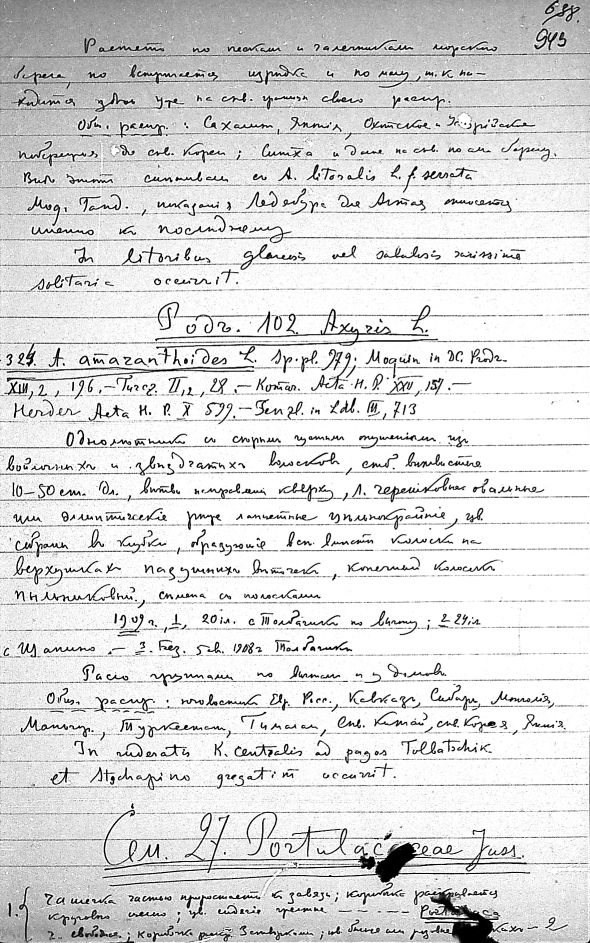 688.
943
Растетъ по пескам и галечникам морского
берега, но встречается изредка и по малу, т.к. на-
ходится здесь уже на сѣв. границѣ своего распр.
Общ. распр.: Сахалин, Япония, Охотское и Уссурійское
побережия до сѣв. Кореи; Ситха и далее на сѣв. по ам. берегу.
Вид этот смешивали с A. litoralis L. f. serrata
Moq. Tand., показания Ледебура для относятся
именно къ последнему
In litoribus glareosis vel sabulosis rarissime
solitaria occurrit.
Родъ. 102. Axyris L.
324. A. amaranthoides L. Sp. pl. 979; Moquin in DC. Prodr.
XIII, 2, 196.— Turcz. II, 2, 28.— Комар. Acta H. P. XXV, 157.—
Herder Acta H. P. X 599.— Fenzl. in Ldb. III, 713
Однолѣтникъ со опушеніем из
войлочных и звѣздчатых волосков, стеб. ветвистые
10–50 cm. дл., ветви направлены кверху, л. черешковые овальные
или эллиптическіе реже ланцетные цельнокрайніе, цв.
собраны в клубки, образующіе колоски на
верхушках пазушных веточек, конечный колосок
пыльниковый, семена с полосками
1909 г., 1, 20 іл. с Толбачикъ по ; 2 24 іл.
с Щапино. — 3. Без. 5 ав. 1908 г Толбачикъ
Расло группами по и у домов.
Общ. распр.: юговосток Евр. Росс., Кавказ, Сибирь, Монголія,
Маньчж., Туркестан, Гималаи, Сѣв. Китай, сѣв. Корея, Япония.
In ruderatis K. centralis ad pagos Tolbatschik
et Stschapino gregatim occurrit.
Сем. 27. Portulacaceae Juss.
1. Чашечка частью приростает къ завязи; коробочка раскрывается
кругово ; цв. сидячіе желтые - - - - Portulaca
Ч. свободная; коробочка раскр. 3 створками; цв. - 2